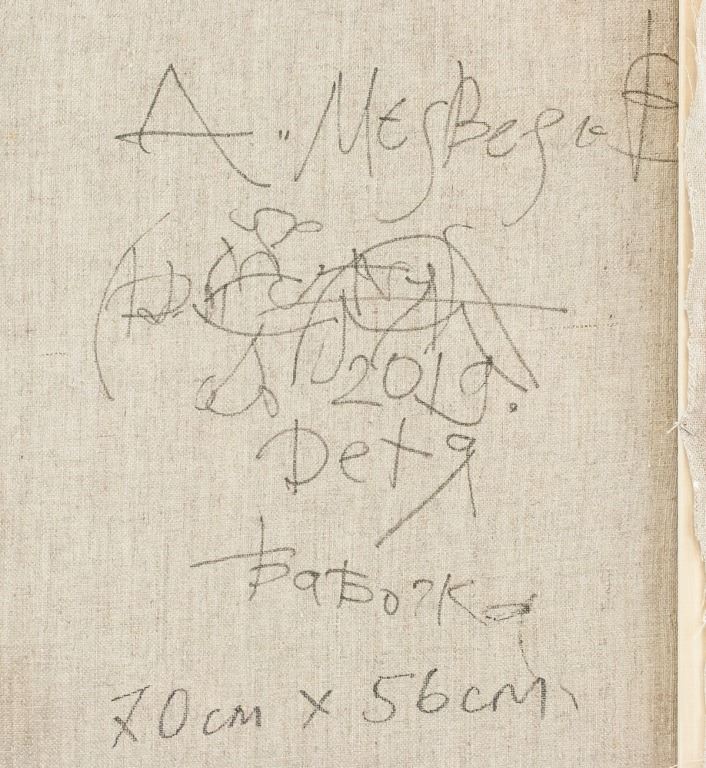 А. Медведев
2019.
Детя
Бабочка
70см х 56см